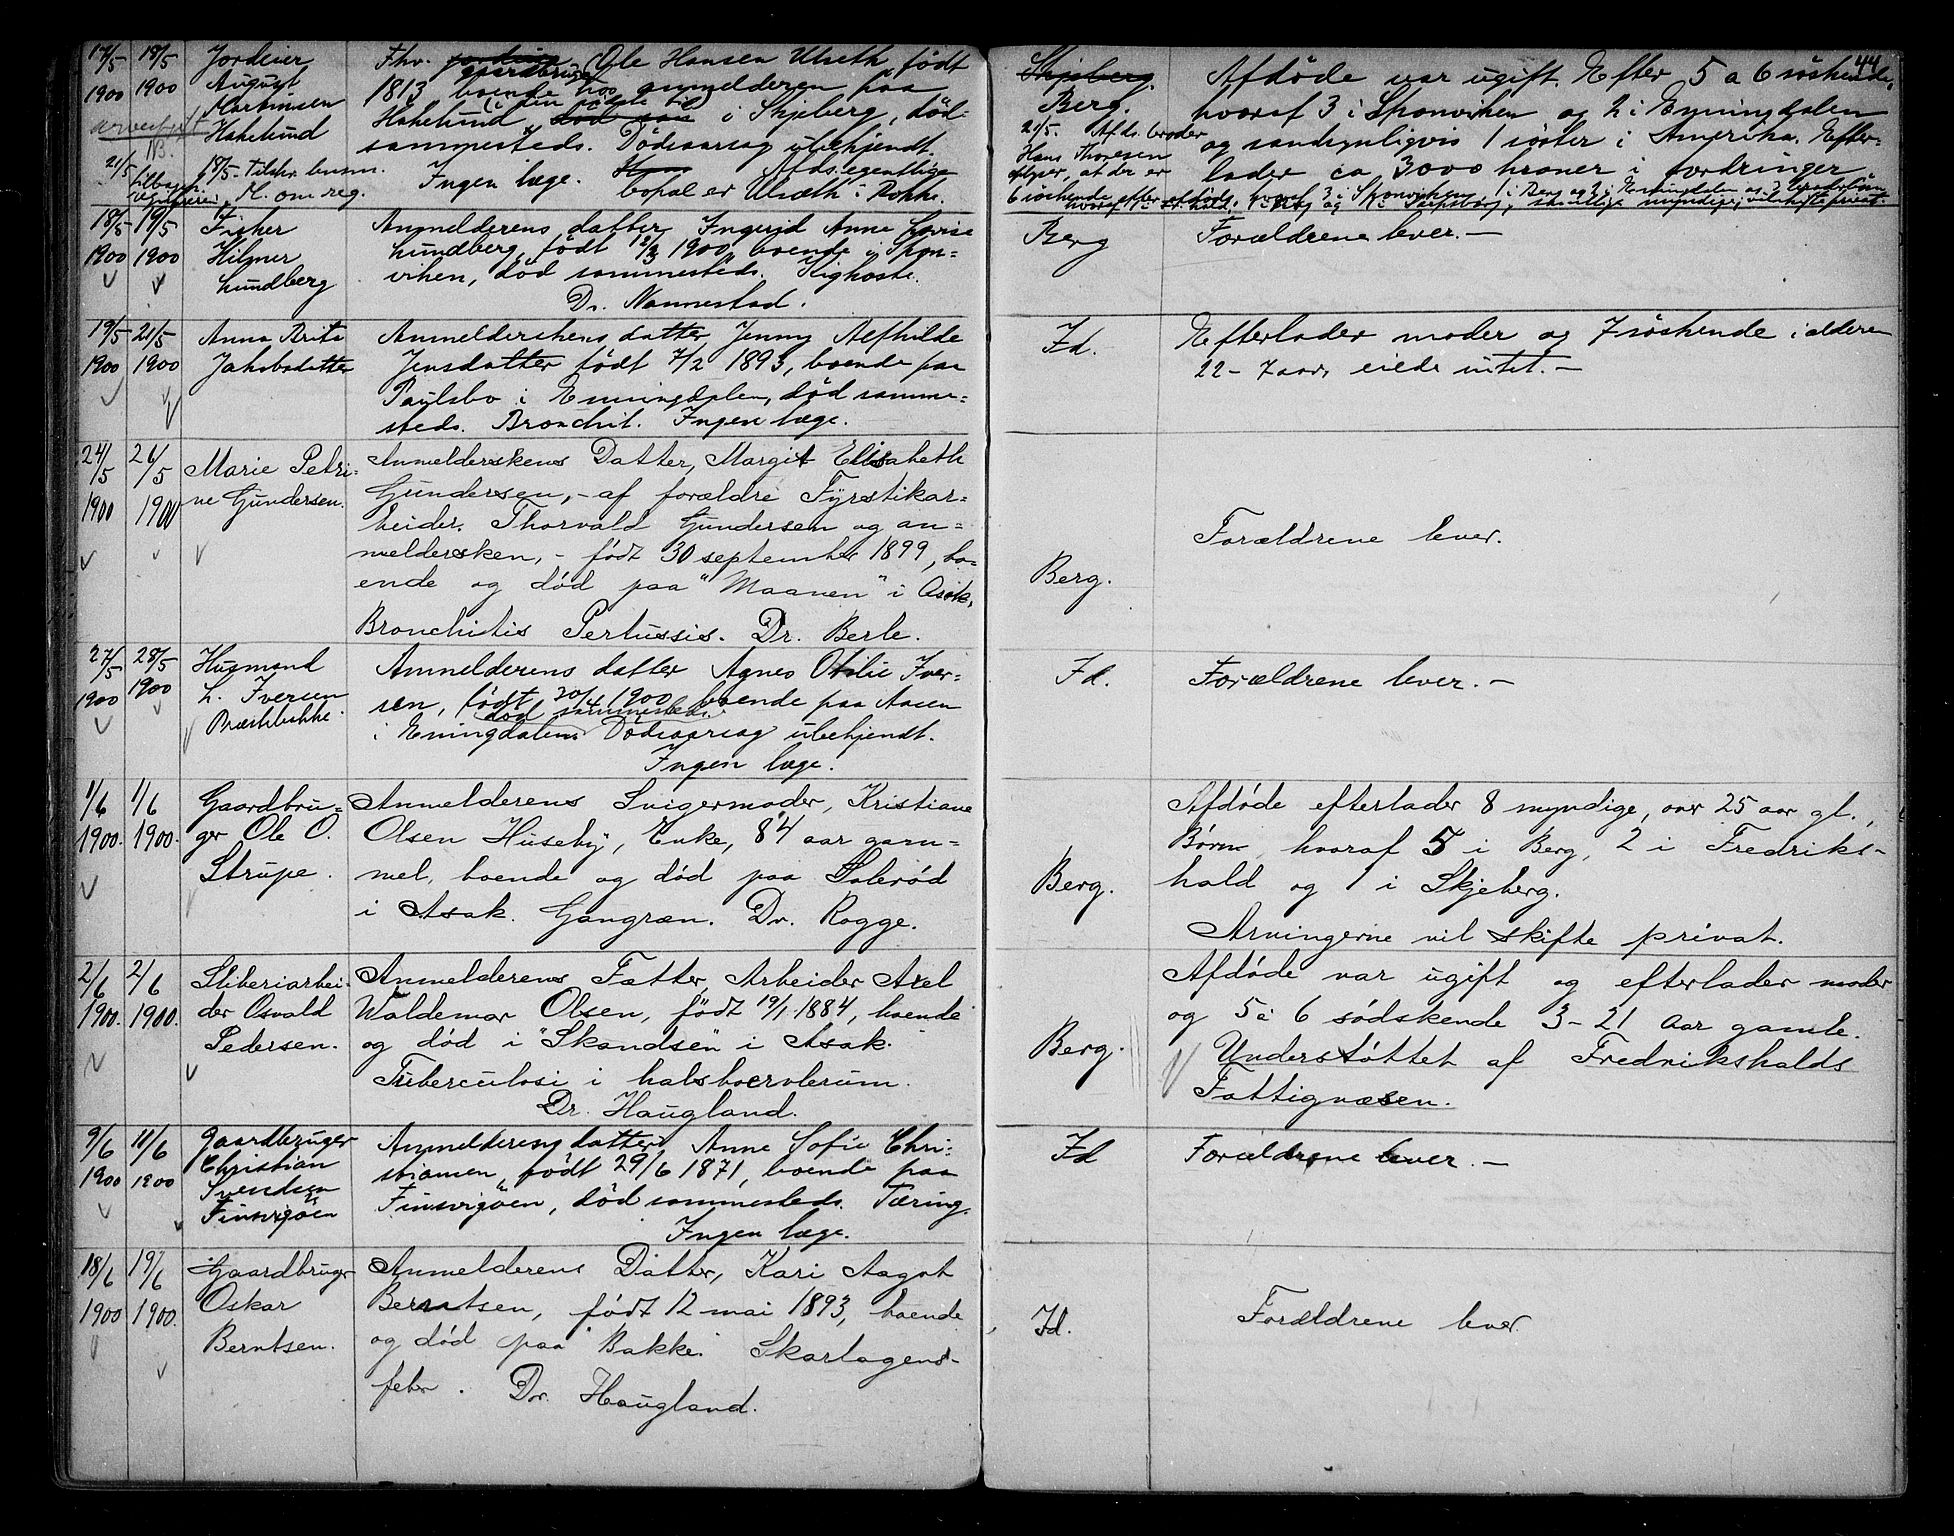 44
17/5 18/5 Jordeier Fhv. jordeier Ole Hansen Ulseth født
gaardbruger
1900 1900 August 1813 boende hos anmelderen paa
Martinusen Hakelund, død i Skjeberg, død
arveafgift Hakelund sammesteds. Dødsaarsag ubekjendt.
NB.
21/5 18/5 - Tilskr. Ingen læge. Afds. egentlige
M. om reg. bopæl er Ulseth i Rokke.
Skjeberg. Afdøde var ugift. Efter 5 a 6 søskende,
Berg. hvoraf 3 i Sponviken og 2 i Enningdalen
21/5. Afds. broder og sandsynligvis 1 søster i Amerika. Efter-
Hans Thoresen lader ca 3000 kroner i fordringer
oplyser, at der er
6 søskende efter afdøde, hvoraf 3 i Sponviken, 1 i Berg og 2 i Enningdalen
18/5 19/5 Fisker Anmelderens datter Ingerid Anne Lovise
1900 1900 Hilmer Lundberg, født 12/3 1900, boende i Spon-
Lundberg viken, død sammesteds. Kighoste.
Dr. Nannestad.
Berg Forældrene lever. -
19/5 21/5 Anna Brita Anmelderskens datter Jenny Alfhilde
1900 1900 Jakobsdatter Jensdatter født 7/2 1893, boende paa
Paulsbo i Enningdalen, død samme-
steds. Bronchit. Ingen læge.
Id. Efterlader moder og 7 søskende i alderen
22 - 7 aar, eiede intet. -
24/5 26/5 Marie Petri- Anmelderskens Datter, Margit Elisabeth
1900 1900 ne Gundersen. Gundersen, - af forældre Fyrstikar-
beider. Thorvald Gundersen og an-
meldersken, - født 30 september 1899, bo-
ende og død paa "Maanen" i Asak,
Bronchitis Pertussis. Dr. Berle.
Berg. Forældrene lever.
27/5 28/5 Husmand Anmelderens datter Agnes Otilie Iver-
1900 1900 L. Iversen sen, født 20/4 1900 boende paa Aasen
Præstebakke. død sammesteds.
i Enningdalen. Dødsaarsag ubekjendt.
Ingen læge.
Id. Forældrene lever. -
1/6 1/6 Gaardbru- Anmelderens Svigermoder, Kristiane
1900. 1900. ger Ole O. Olsen Huseby, Enke, 84 aar gam-
Strupe. mel, boende og død paa Solerød
i Asak. Gangræn. Dr. Rogge.
Afdøde efterlader 8 myndige, over 25 aar gl.,
Børn, hvoraf 5 i Berg, 2 i Fredriks-
Berg. hald og 1 i Skjeberg.
Arvingerne vil skifte privat.
2/6 2/6 Sliberiarbei- Anmelderens Fatter, Arbeider Axel
1900. 1900. der Osvald Waldemar Olsen, født 19/1 1884, boende
Pedersen. og død i "Skandsen" i Asak.
Tuberculosi i
Dr. Haugland.
Afdøde var ugift og efterlader moder
og 5 à 6 sødskende 3 - 21 Aar gamle.
Berg. Understøttet af Fredrikshalds
Fattigvæsen.
9/6 11/6 Gaardbruger Anmelderens datter, Anne Sofie Chri-
1900 1900 Christian stiansen, født 29/6 1871, boende paa
Svendsen Finsvigøen, død sammesteds. Tæring.
Finsvigøen Ingen læge.
Id Forældrene lever. -
18/6 19/6 Gaardbruger Anmelderens Datter, Kari Aagot
1900 1900. Oskar Berntsen, født 12 mai 1893, boende
Berntsen. og død paa Bakke. Skarlagens-
feber. Dr. Haugland.
Id. Forældrene lever.